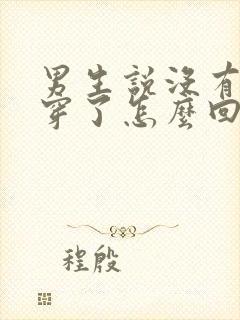 男生說沒有
穿了怎麼回
程殷